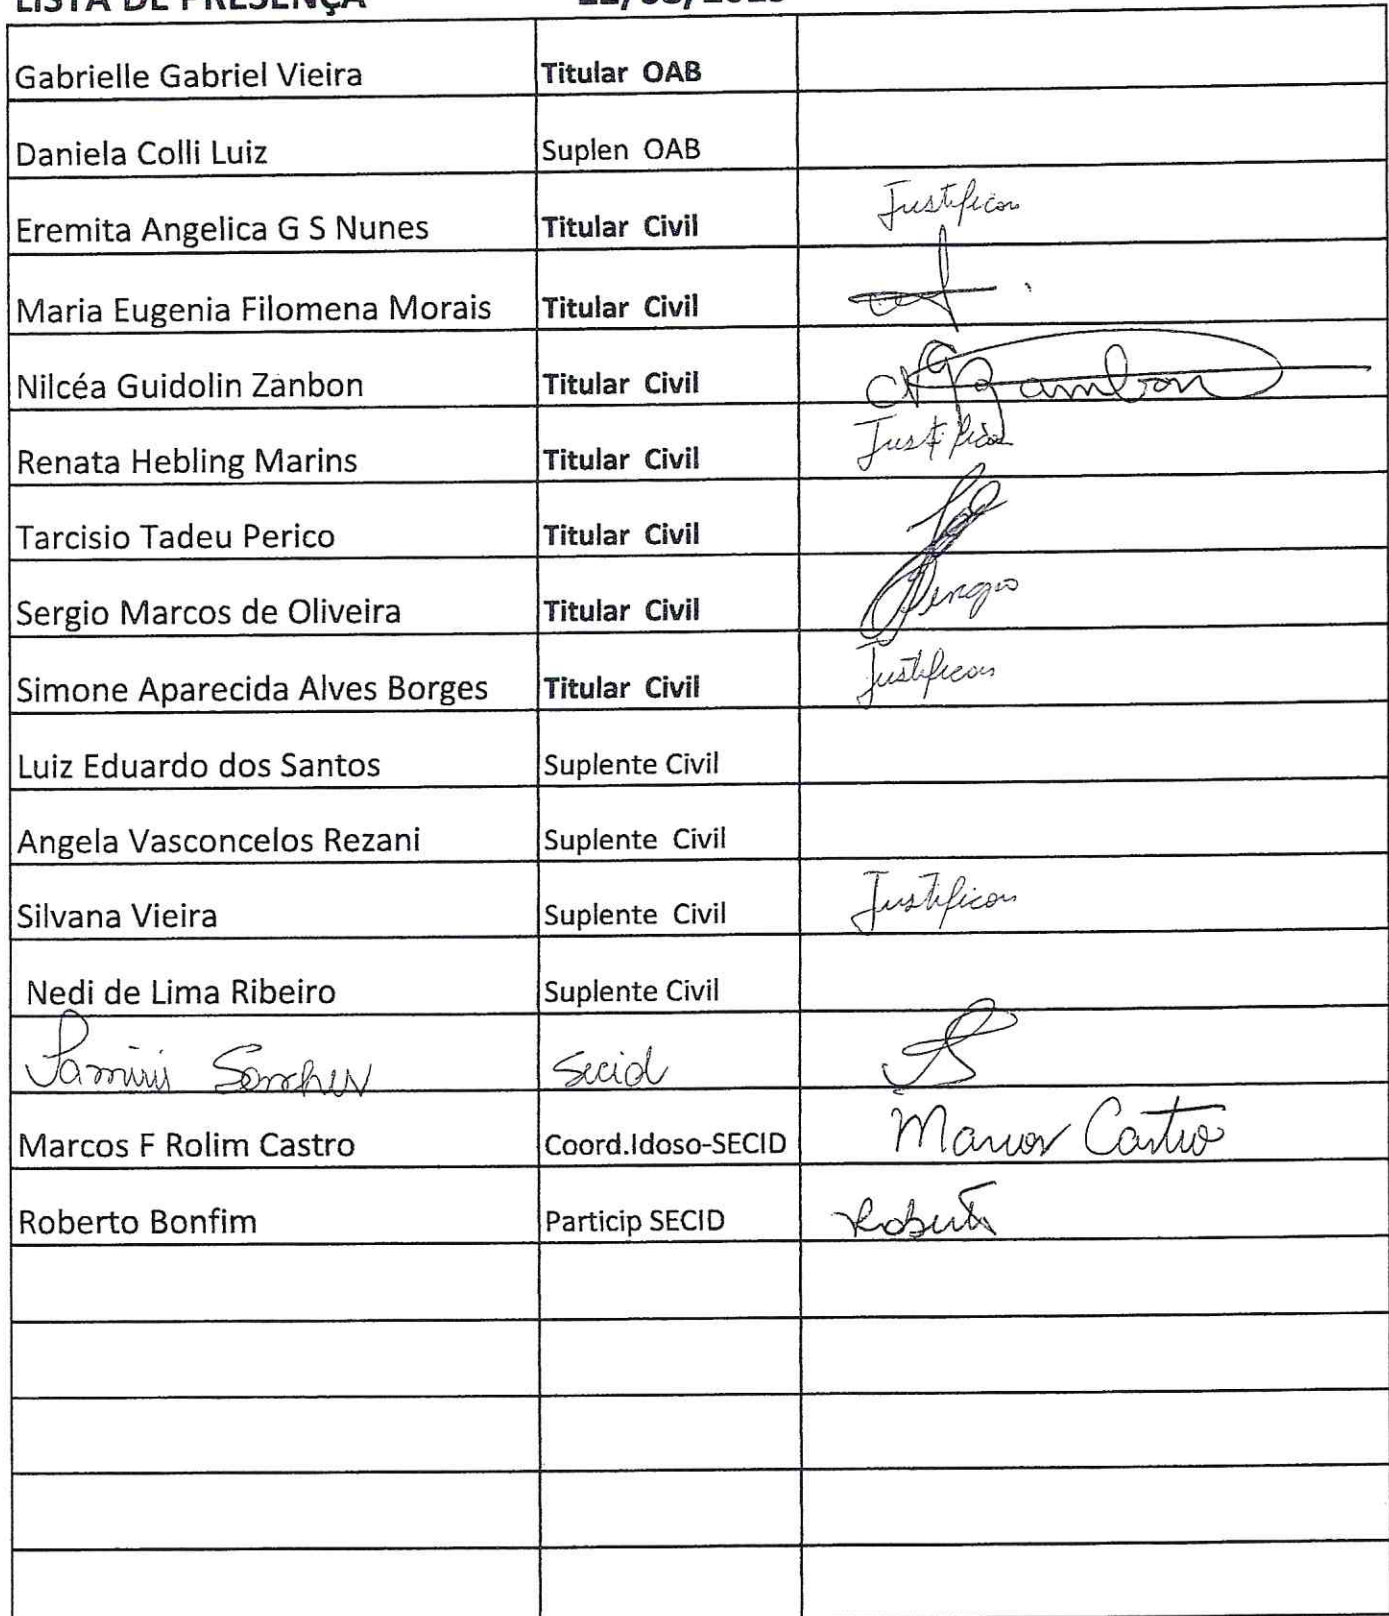 LISTA DE PRESENÇA
Gabrielle Gabriel Vieira Titular OAB
Daniela Colli Luiz Suplen OAB
Eremita Angelica G S Nunes Titular Civil Justificou
Maria Eugenia Filomena Morais Titular Civil
Nilcéa Guidolin Zanbon Titular Civil Zambon
Renata Hebling Marins Titular Civil Justificou
Tarcisio Tadeu Perico Titular Civil
Sergio Marcos de Oliveira Titular Civil Sergio
Simone Aparecida Alves Borges Titular Civil Justificou
Luiz Eduardo dos Santos Suplente Civil
Angela Vasconcelos Rezani Suplente Civil
Silvana Vieira Suplente Civil Justificou
Nedi de Lima Ribeiro Suplente Civil
Secid
Marcos F Rolim Castro Coord.Idoso-SECID Marcos Castro
Roberto Bonfim Particip SECID Roberto